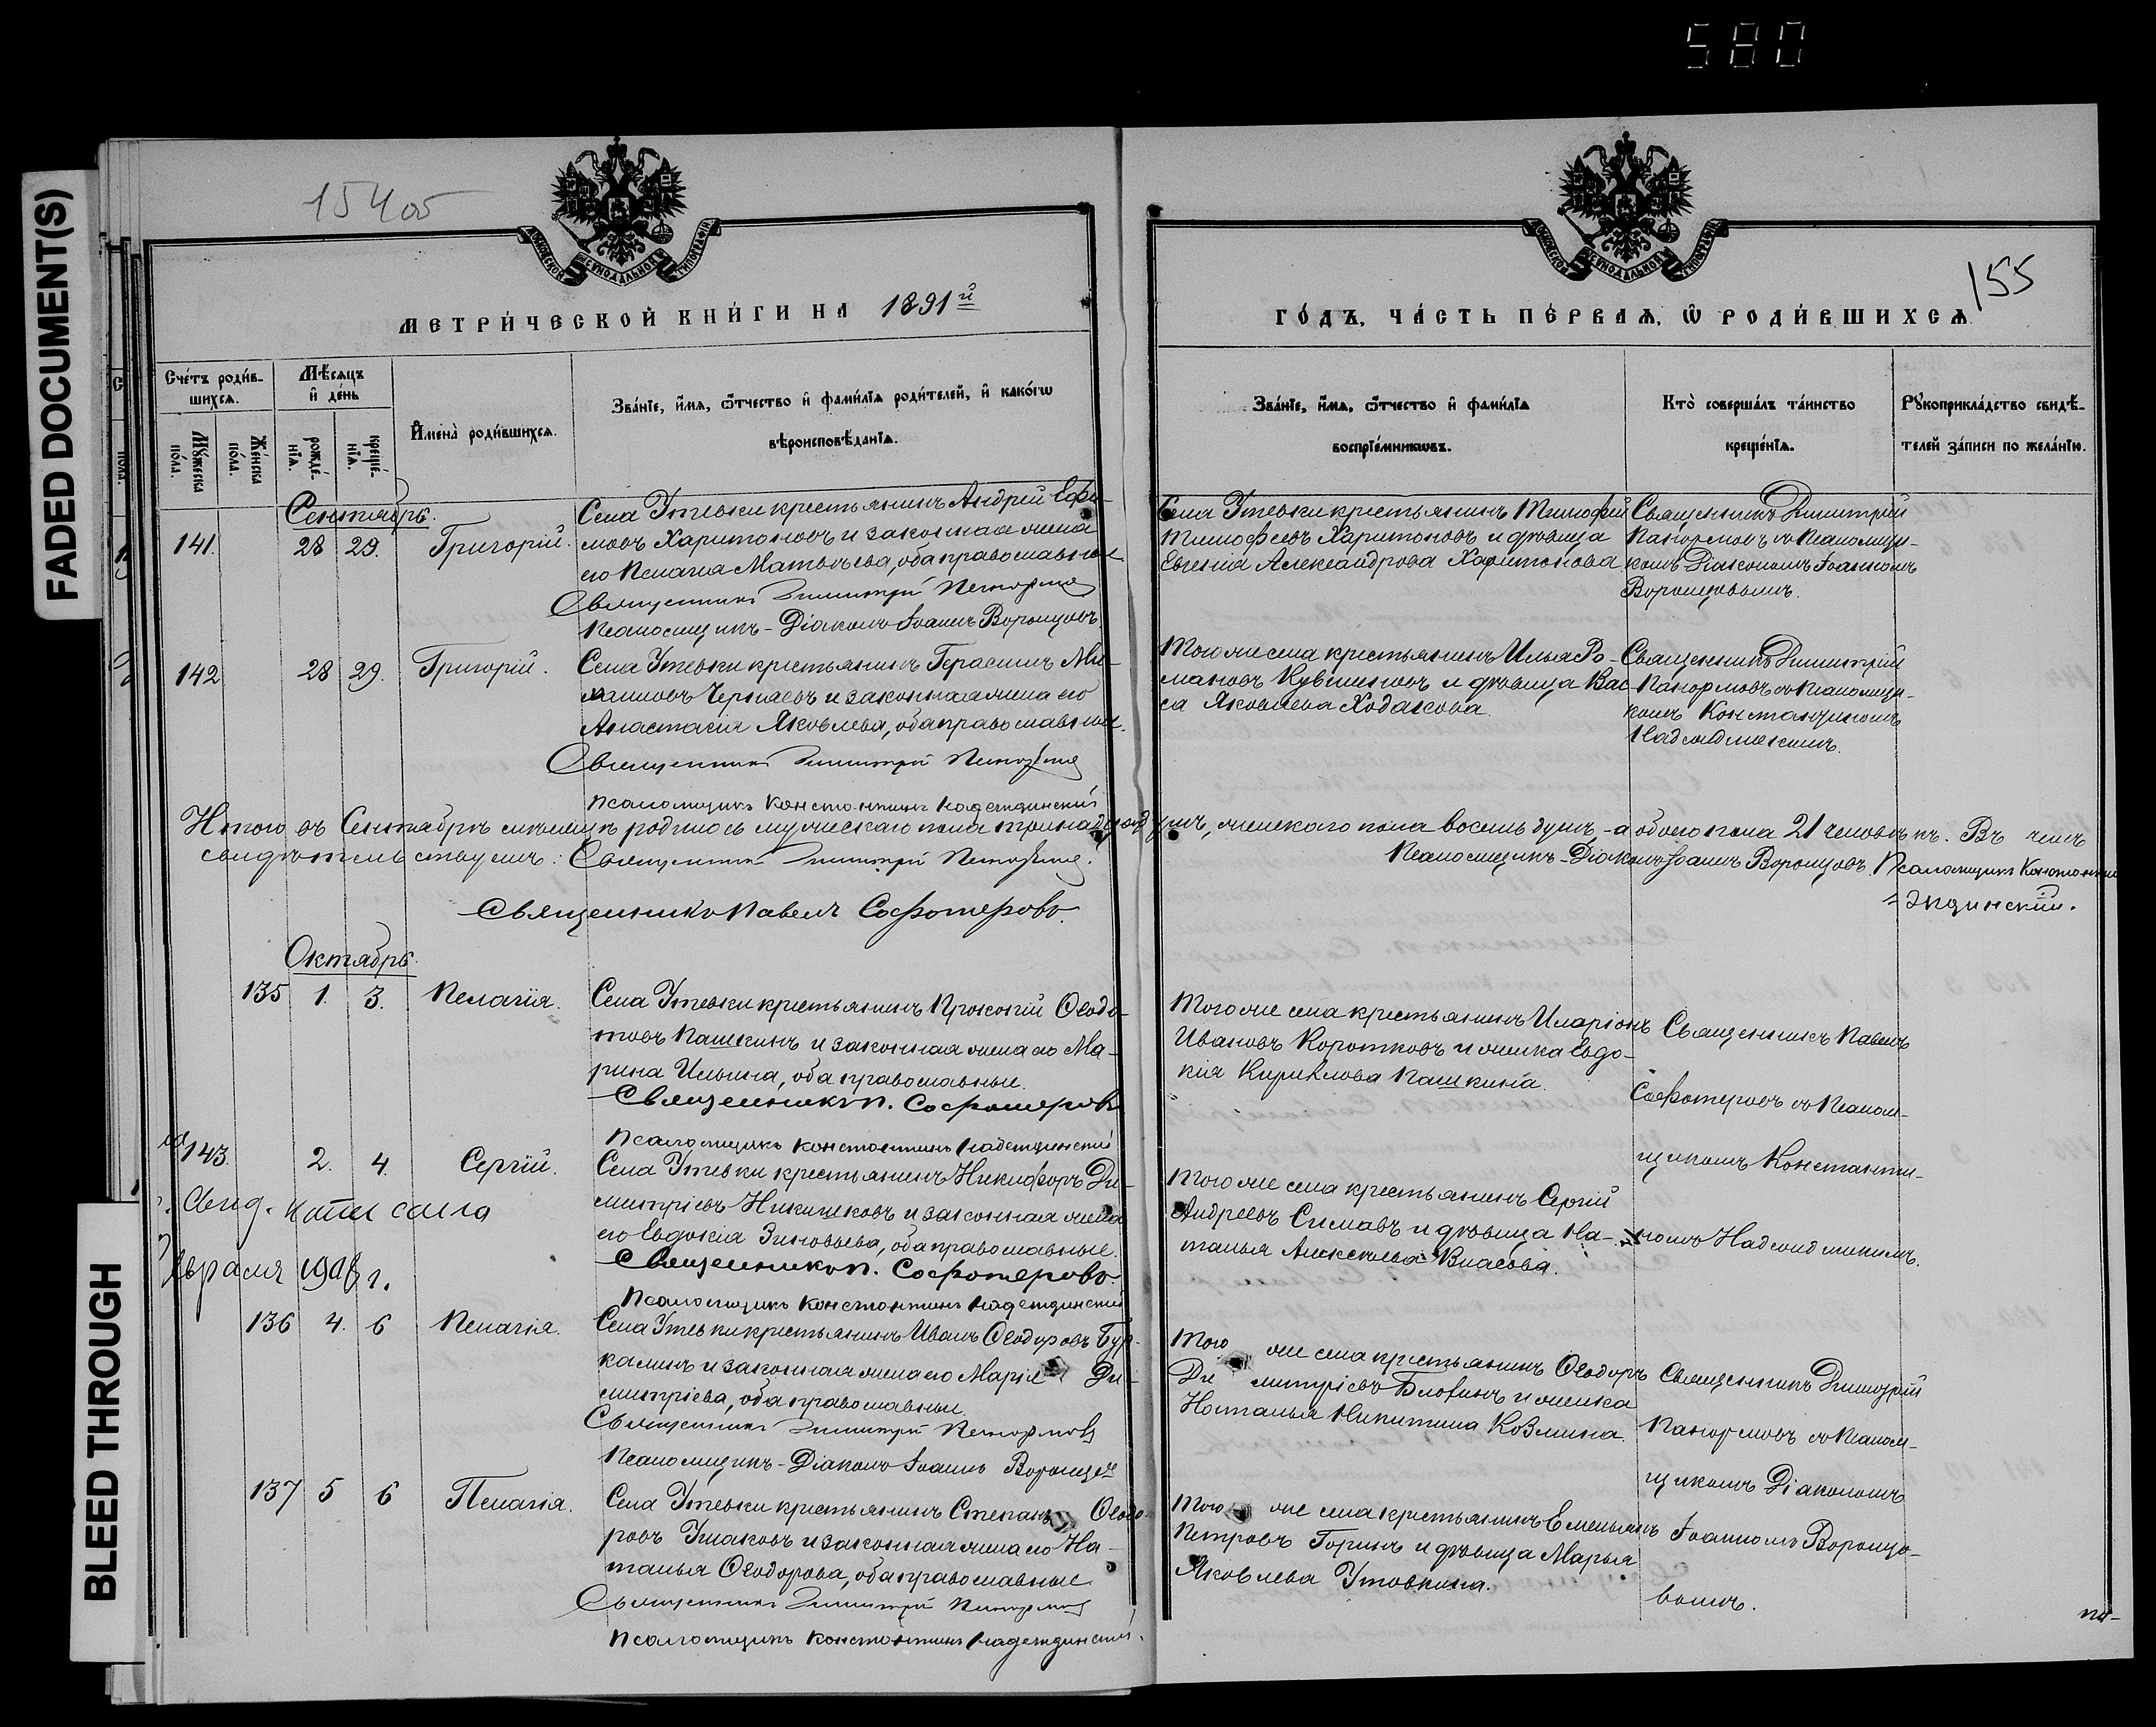 580
FADED DOCUMENT(S)
BLEED THROUGH
154об
155
МЕТРИ́ЧЕСКОЙ КНИ́ГИ НА 1891й
ГО́ДЪ, ЧА́СТЬ ПЕ́РВАѦ, Ѡ҆ РОДИ́ВШИХСѦ
Сче́тъ роди́в-
шихсѧ.
Мѣ́сѧцъ
и҆ де́нь
Мꙋ́жеска по́ла.
Же́нска по́ла.
рожде́-
нїѧ.
креще́-
нїѧ.
И҆мена̀ роди́вшихсѧ.
Зва́нїе, и҆́мѧ, ѻ҆́тчество и҆ фами́лїѧ роди́телей, и҆ како́гѡ
вѣроисповѣ́данїѧ.
Зва́нїе, и҆́мѧ, ѻ҆́тчество и҆ фами́лїѧ
воспрїе́мникѡвъ.
Кто̀ соверша́лъ та́инство
креще́нїѧ.
Рꙋкоприкла́дство свидѣ́-
телей за́писи по жела́нїю.
Сентябрь.
141. 28 29. Григорій.
Села Утевки крестьянинъ Андрей Ефи-
мовъ Харитоновъ и законная жена
его Пелагія Матвѣева, оба православные
Священникъ Димитрій Панормовъ
Псаломщикъ-Діаконъ Іоаннъ Воронцовъ
Села Утевки крестьянинъ Тимофей
Тимофеевъ Харитоновъ и дѣвица
Евгенія Александрова Харитонова
Священникъ Димитрій
Панормовъ съ Псаломщи-
комъ Діакономъ Іоанномъ
Воронцовымъ.
142 28 29. Григорій.
Села Утевки крестьянинъ Герасимъ
Черняевъ и законная жена его
Анастасія Яковлева, оба православные.
Священникъ Димитрій Панормовъ
Псаломщикъ Константинъ Надеждинскій
Того же села крестьянинъ Илья Ро-
мановъ Кувшиновъ и дѣвица Вас-
са Яковлева Ходакова.
Священникъ Димитрій
Панормовъ съ Псаломщи-
комъ Константиномъ
Надеждинскимъ.
Итого въ Сентябрѣ мѣсяцѣ родилось мужескаго пола тринадцать душъ, женскаго пола восемь душъ, а обоего пола 21 человѣкъ. Въ чемъ
свидѣтельствуемъ: Священникъ Димитрій Панормовъ.
Псаломщикъ-Діаконъ Іоаннъ Воронцовъ. Псаломщикъ
Священникъ Павелъ Софотеровъ.
Октябрь.
135 1. 3. Пелагія.
Села Утевки крестьянинъ Прокопій Ѳеодо-
товъ Пашкинъ и законная жена его Ма-
рина Ильина, оба православные.
Священникъ П. Софотеровъ
Псаломщикъ Константинъ Надеждинскій
Того же села крестьянинъ Иларіонъ
Ивановъ Коротковъ и женка Евдо-
кія Кирилова Пашкина.
Священникъ Павелъ
Софотеровъ съ Псалом-
щикомъ Константи-
номъ Надеждинскимъ.
143. 2. 4. Сергій.
Села Утевки крестьянинъ Никифоръ Ди-
митріевъ Никишковъ и законная жена
его Евдокія Зиновьева, оба православные.
Священникъ П. Софотеровъ.
Псаломщикъ Константинъ Надеждинскій
Того же села крестьянинъ Сергій
Андреевъ Симавъ и дѣвица На-
талья Алексѣева Власова.
Свид.
136 4. 6 Пелагія.
Села Утевки крестьянинъ Иванъ Ѳеодоровъ Бур-
калинъ и законная жена его Марія Ди-
митріева, оба православные.
Священникъ Димитрій Панормовъ
Псаломщикъ-Діаконъ Іоаннъ Воронцовъ
Того же села крестьянинъ Ѳеодоръ
Димитріевъ и женка
Наталья Никитина Козмина.
Священникъ Димитрій
Панормовъ съ Псалом-
щикомъ Діакономъ
Іоанномъ Воронцо-
вымъ.
137 5 6 Пелагія.
Села Утевки крестьянинъ Степанъ Ѳеодо-
ровъ Ушаковъ и законная жена его На-
талья Ѳеодорова, оба православные.
Священникъ Димитрій Панормовъ
Псаломщикъ Константинъ Надеждинскій.
Того же села крестьянинъ Емельянъ
Петровъ Горинъ и дѣвица Марья
Яковлева Утовкина.